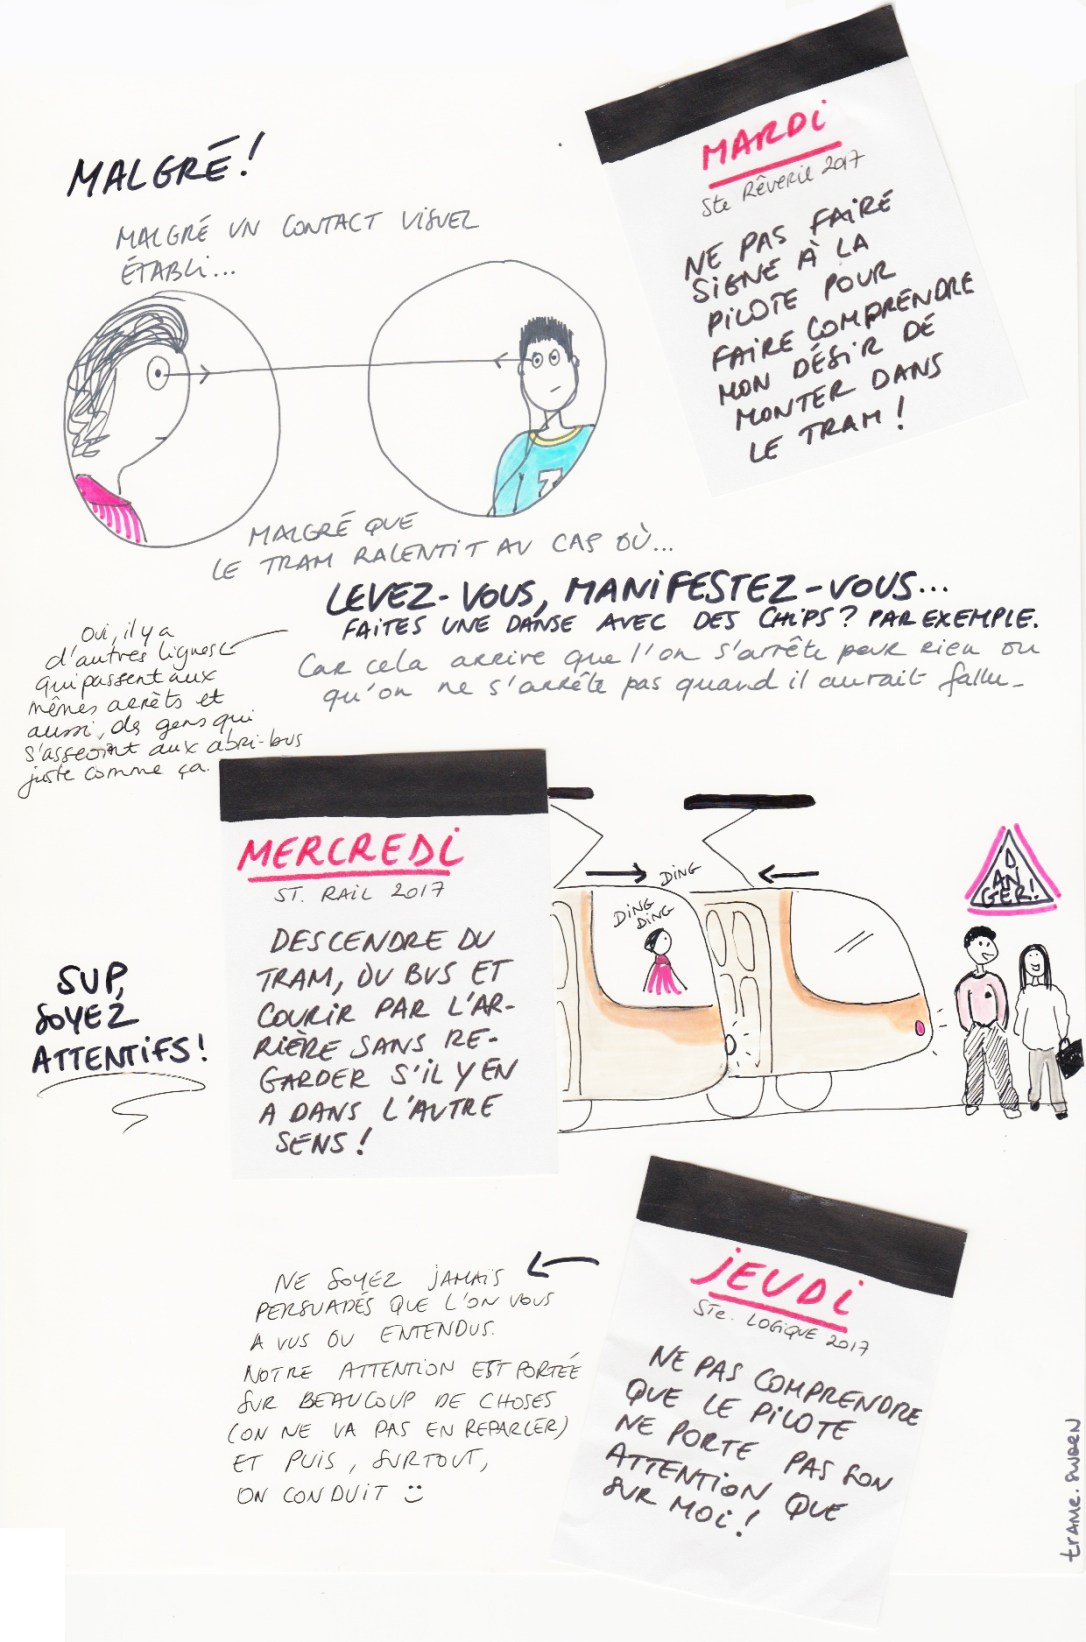 MALGRÉ!
MALGRÉ UN CONTACT VISUEL
ÉTABLI...
MARDI
Ste Rêverie 2017
NE PAS FAIRE
SIGNE À LA
PILOTE POUR
FAIRE COMPRENDRE
MON DÉSIR DE
MONTER DANS
LE TRAM!
7
MALGRÉ QUE
LE TRAM RALENTIT AU CAS OÙ...
LEVEZ-VOUS, MANIFESTEZ-VOUS...
FAITES UNE DANSE AVEC DES CHIPS? PAR EXEMPLE.
Car cela arrive que l'on s'arrête pour rien ou
qu'on ne s'arrête pas quand il aurait fallu_
Oui, il y a
d'autres lignes
qui passent aux
mêmes arrêts et
aussi, des gens qui
s'asseoint aux abri-bus
juste comme ça.
MERCREDI
ST. RAIL 2017
DESCENDRE DU
TRAM, DU BUS ET
COURIR PAR L'AR-
RIÈRE SANS RE-
GARDER S'IL Y EN
A DANS L'AUTRE
SENS!
DING
DING
DING
DANGER!
SUP,
SOYEZ
ATTENTIFS!
JEUDI
STE. LOGIQUE 2017
NE PAS COMPRENDRE
QUE LE PILOTE
NE PORTE PAS SON
ATTENTION QUE
SUR MOI!
NE SOYEZ JAMAIS
PERSUADÉS QUE L'ON VOUS
A VUS OU ENTENDUS.
NOTRE ATTENTION EST PORTÉE
SUR BEAUCOUP DE CHOSES
(ON NE VA PAS EN REPARLER)
ET PUIS, SURTOUT,
ON CONDUIT :)
trame.sworn